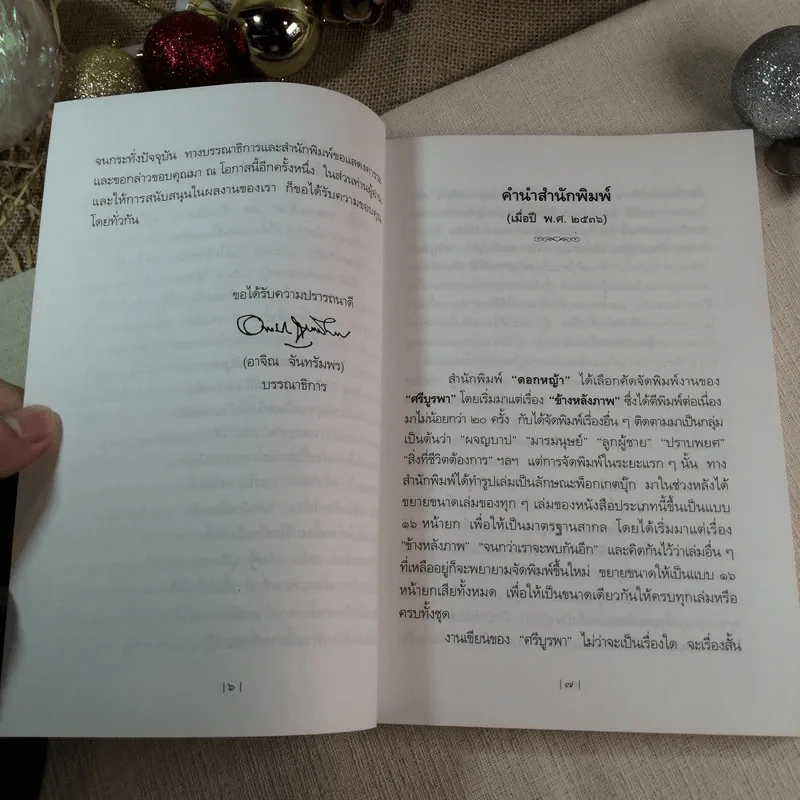 จนกระทั่งปัจจุบัน ทางบรรณาธิการและสำนักพิมพ์ขอแสดงคารวะ
และขอกล่าวขอบคุณมา ณ โอกาสนี้อีกครั้งหนึ่ง ในส่วนท่านผู้อ่าน
และให้การสนับสนุนในผลงานของเรา ก็ขอได้รับความขอบคุณ
โดยทั่วกัน
ขอได้รับความปรารถนาดี
(อาจิณ จันทรัมพร)
บรรณาธิการ
|๖|
คำนำสำนักพิมพ์
(เมื่อปี พ.ศ. ๒๕๓๖)
สำนักพิมพ์ "ดอกหญ้า" ได้เลือกคัดจัดพิมพ์งานของ
"ศรีบูรพา" โดยเริ่มมาแต่เรื่อง "ข้างหลังภาพ" ซึ่งได้ตีพิมพ์ต่อเนื่อง
มาไม่น้อยกว่า ๒๐ ครั้ง กับได้จัดพิมพ์เรื่องอื่น ๆ ติดตามมาเป็นกลุ่ม
เป็นต้นว่า "ผจญบาป" "มารมนุษย์" "ลูกผู้ชาย" "ปราบพยศ"
"สิ่งที่ชีวิตต้องการ" ฯลฯ แต่การจัดพิมพ์ในระยะแรก ๆ นั้น ทาง
สำนักพิมพ์ได้ทำรูปเล่มเป็นลักษณะพ็อกเกตบุ๊ก มาในช่วงหลังได้
ขยายขนาดเล่มของทุก ๆ เล่มของหนังสือประเภทนี้ขึ้นเป็นแบบ
๑๖ หน้ายก เพื่อให้เป็นมาตรฐานสากล โดยได้เริ่มมาแต่เรื่อง
"ข้างหลังภาพ" "จนกว่าเราจะพบกันอีก" และคิดกันไว้ว่าเล่มอื่น ๆ
ที่เหลืออยู่ก็จะพยายามจัดพิมพ์ขึ้นใหม่ ขยายขนาดให้เป็นแบบ ๑๖
หน้ายกเสียทั้งหมด เพื่อให้เป็นขนาดเดียวกันให้ครบทุกเล่มหรือ
ครบทั้งชุด
งานเขียนของ "ศรีบูรพา" ไม่ว่าจะเป็นเรื่องใด จะเรื่องสั้น
|๗|